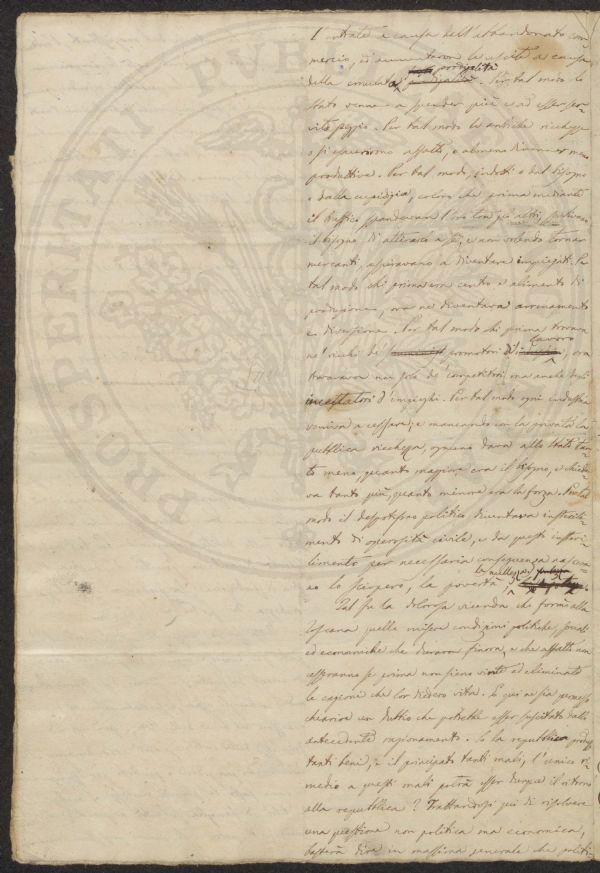 l'entrate a causa dell'abbandonato com-
mercio, ed aumentaron le uscite a causa
della prodigalità. Per tal modo lo
Stato venne a spender più e ad esser ser-
vito peggio. Per tal modo le antiche ricchezze
o si esaurirono affatto, o almeno divennero meno
produttive. Per tal modo, indotti e dal bisogno
e dalla cupidigia, coloro che prima mediante
il traffico spandevano l'oro tra gli altri,
il bisogno di attirarlo a sé, e non volendo tornar
mercanti, aspiravano a diventare impiegati. Per
tal modo chi prima era centro e alimento di
produzione, ora ne diventava arrenamento
e diversione. Per tal modo chi prima trovava
ne' ricchi de' promotori di lavoro, ora
trovava non solo de' competitori, ma anche degli
incettatori d'impieghi. Per tal modo ogni industria
veniva a cessare; e mancando con la privata la
pubblica ricchezza, ognuno dava allo Stato tan-
to meno, quanto maggiore era il bisogno, e chiede-
va tanto più, quanto minore era la forza. Per tal
modo il despotismo politico diventava isterili-
mento di operosità civile, e da questo isteri-
limento per necessaria conseguenza nasceva-
no lo sciopero, la povertà,
Tal fu la dolorosa vicenda che formò alla
Toscana quelle misere condizioni politiche, sociali
ed economiche che durarono finora, e che affatto non
cesseranno se prima non sieno vinte ed eliminate
le cagioni che lor diedero vita. E qui ne sia permesso
chiarire un dubbio che potrebbe esser suscitato dallo
antecedente ragionamento. Se la repubblica produsse
tanti beni, e il principato tanti mali, l'unico ri-
medio a questi mali potrà esser dunque il ritorno
alla repubblica? Trattandosi qui di risolvere
una questione non politica ma economica,
basterà dire in massima generale che politi-
PROSPERITATI PUBL